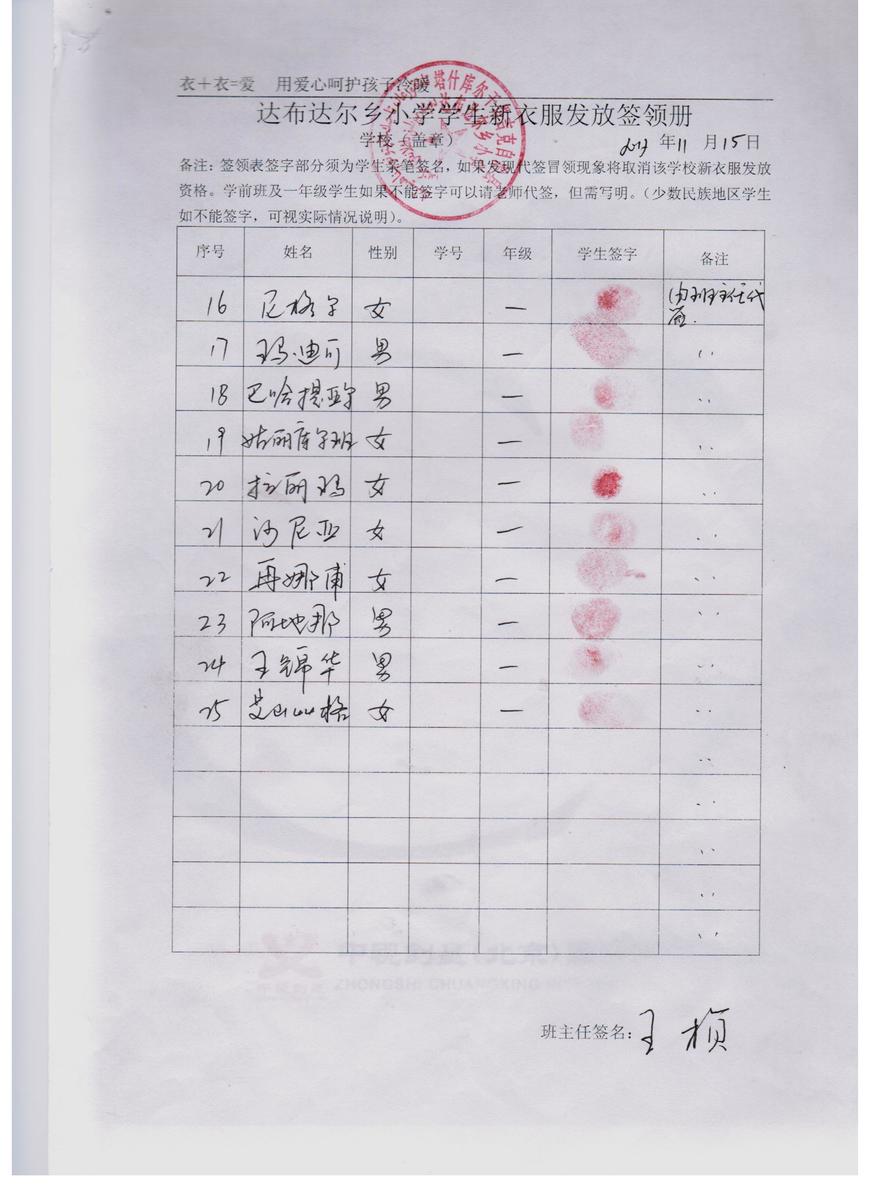 衣+衣=爱 用爱心呵护孩子冷暖
达布达尔乡小学学生新衣服发放签领册
学校（盖章） 年 11 月 15 日
备注：签领表签字部分须为学生亲笔签名，如果发现代签冒领现象将取消该学校新衣服发放
资格。学前班及一年级学生如果不能签字可以请老师代签，但需写明。（少数民族地区学生
如不能签字，可视实际情况说明）。
序号 姓名 性别 学号 年级 学生签字 备注
16 尼格尔 女 一 由班主任代
17 玛迪可 男 一 〃
18 巴哈提亚尔 男 一 〃
19 姑丽库尔班 女 一 〃
20 拉丽玛 女 一 〃
21 沙尼亚 女 一 〃
22 再娜甫 女 一 〃
23 阿地那 男 一 〃
24 王锦华 男 一 〃
25 女 一 〃
〃
〃
〃
〃
〃
ZHONGSHI CHUANGXING
班主任签名：王桢